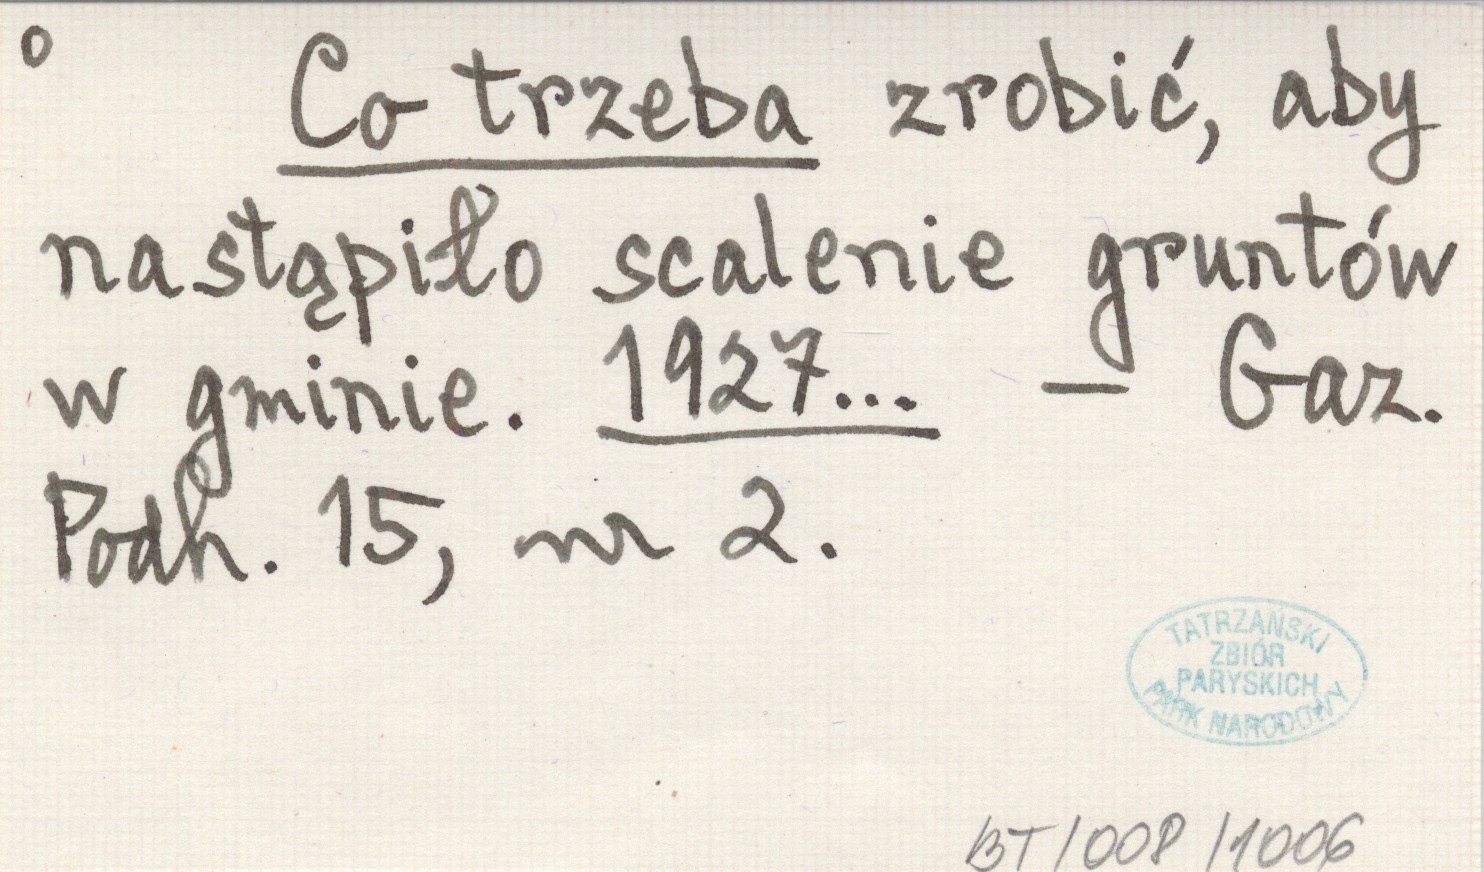 o Co trzeba zrobić, aby
nastąpiło scalenie gruntów
w gminie. 1927... — Gaz.
Podh. 15, nr 2.
TATRZAŃSKI
ZBIÓR
PARYSKICH
PARK NARODOWY
BT/008/1006